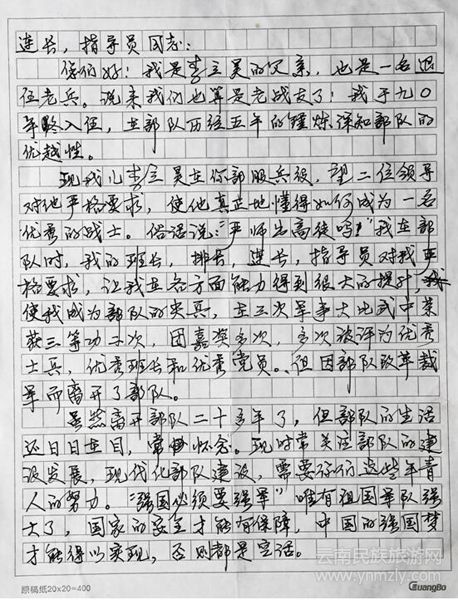 连长，指导员同志：
你们好！我是李立昊的父亲，也是一名退
伍老兵。说来我们也算是老战友了！我于九〇
年龄入伍，在部队历经五年的锤炼深知部队的
优越性。
现我儿李立昊在你部服兵役，望二位领导
对他严格要求，使他真正地懂得如何成为一名
优秀的战士。俗话说："严师出高徒吗"我在部
队时，我的班长，排长，连长，指导员对我严
格要求，让我在各方面能力得到很大的提升，
使我成为部队的尖兵，在三次军事大比武中荣
获三等功二次，团嘉奖多次，多次被评为优秀
士兵，优秀班长和优秀党员。但因部队改革裁
军而离开了部队。
虽然离开部队二十多年了，但部队的生活
还日日在目，常怀念。现时常关注部队的建
设发展，现代化部队建设，需要你们这些年青
人的努力。"强国必须要强军"唯有祖国军队强
大了，国家的安全才能有保障，中国的强国梦
才能得以实现，否则都是空话。
云南民族旅游网
www.ynmzly.com
原稿纸20x20=400
GuangBo